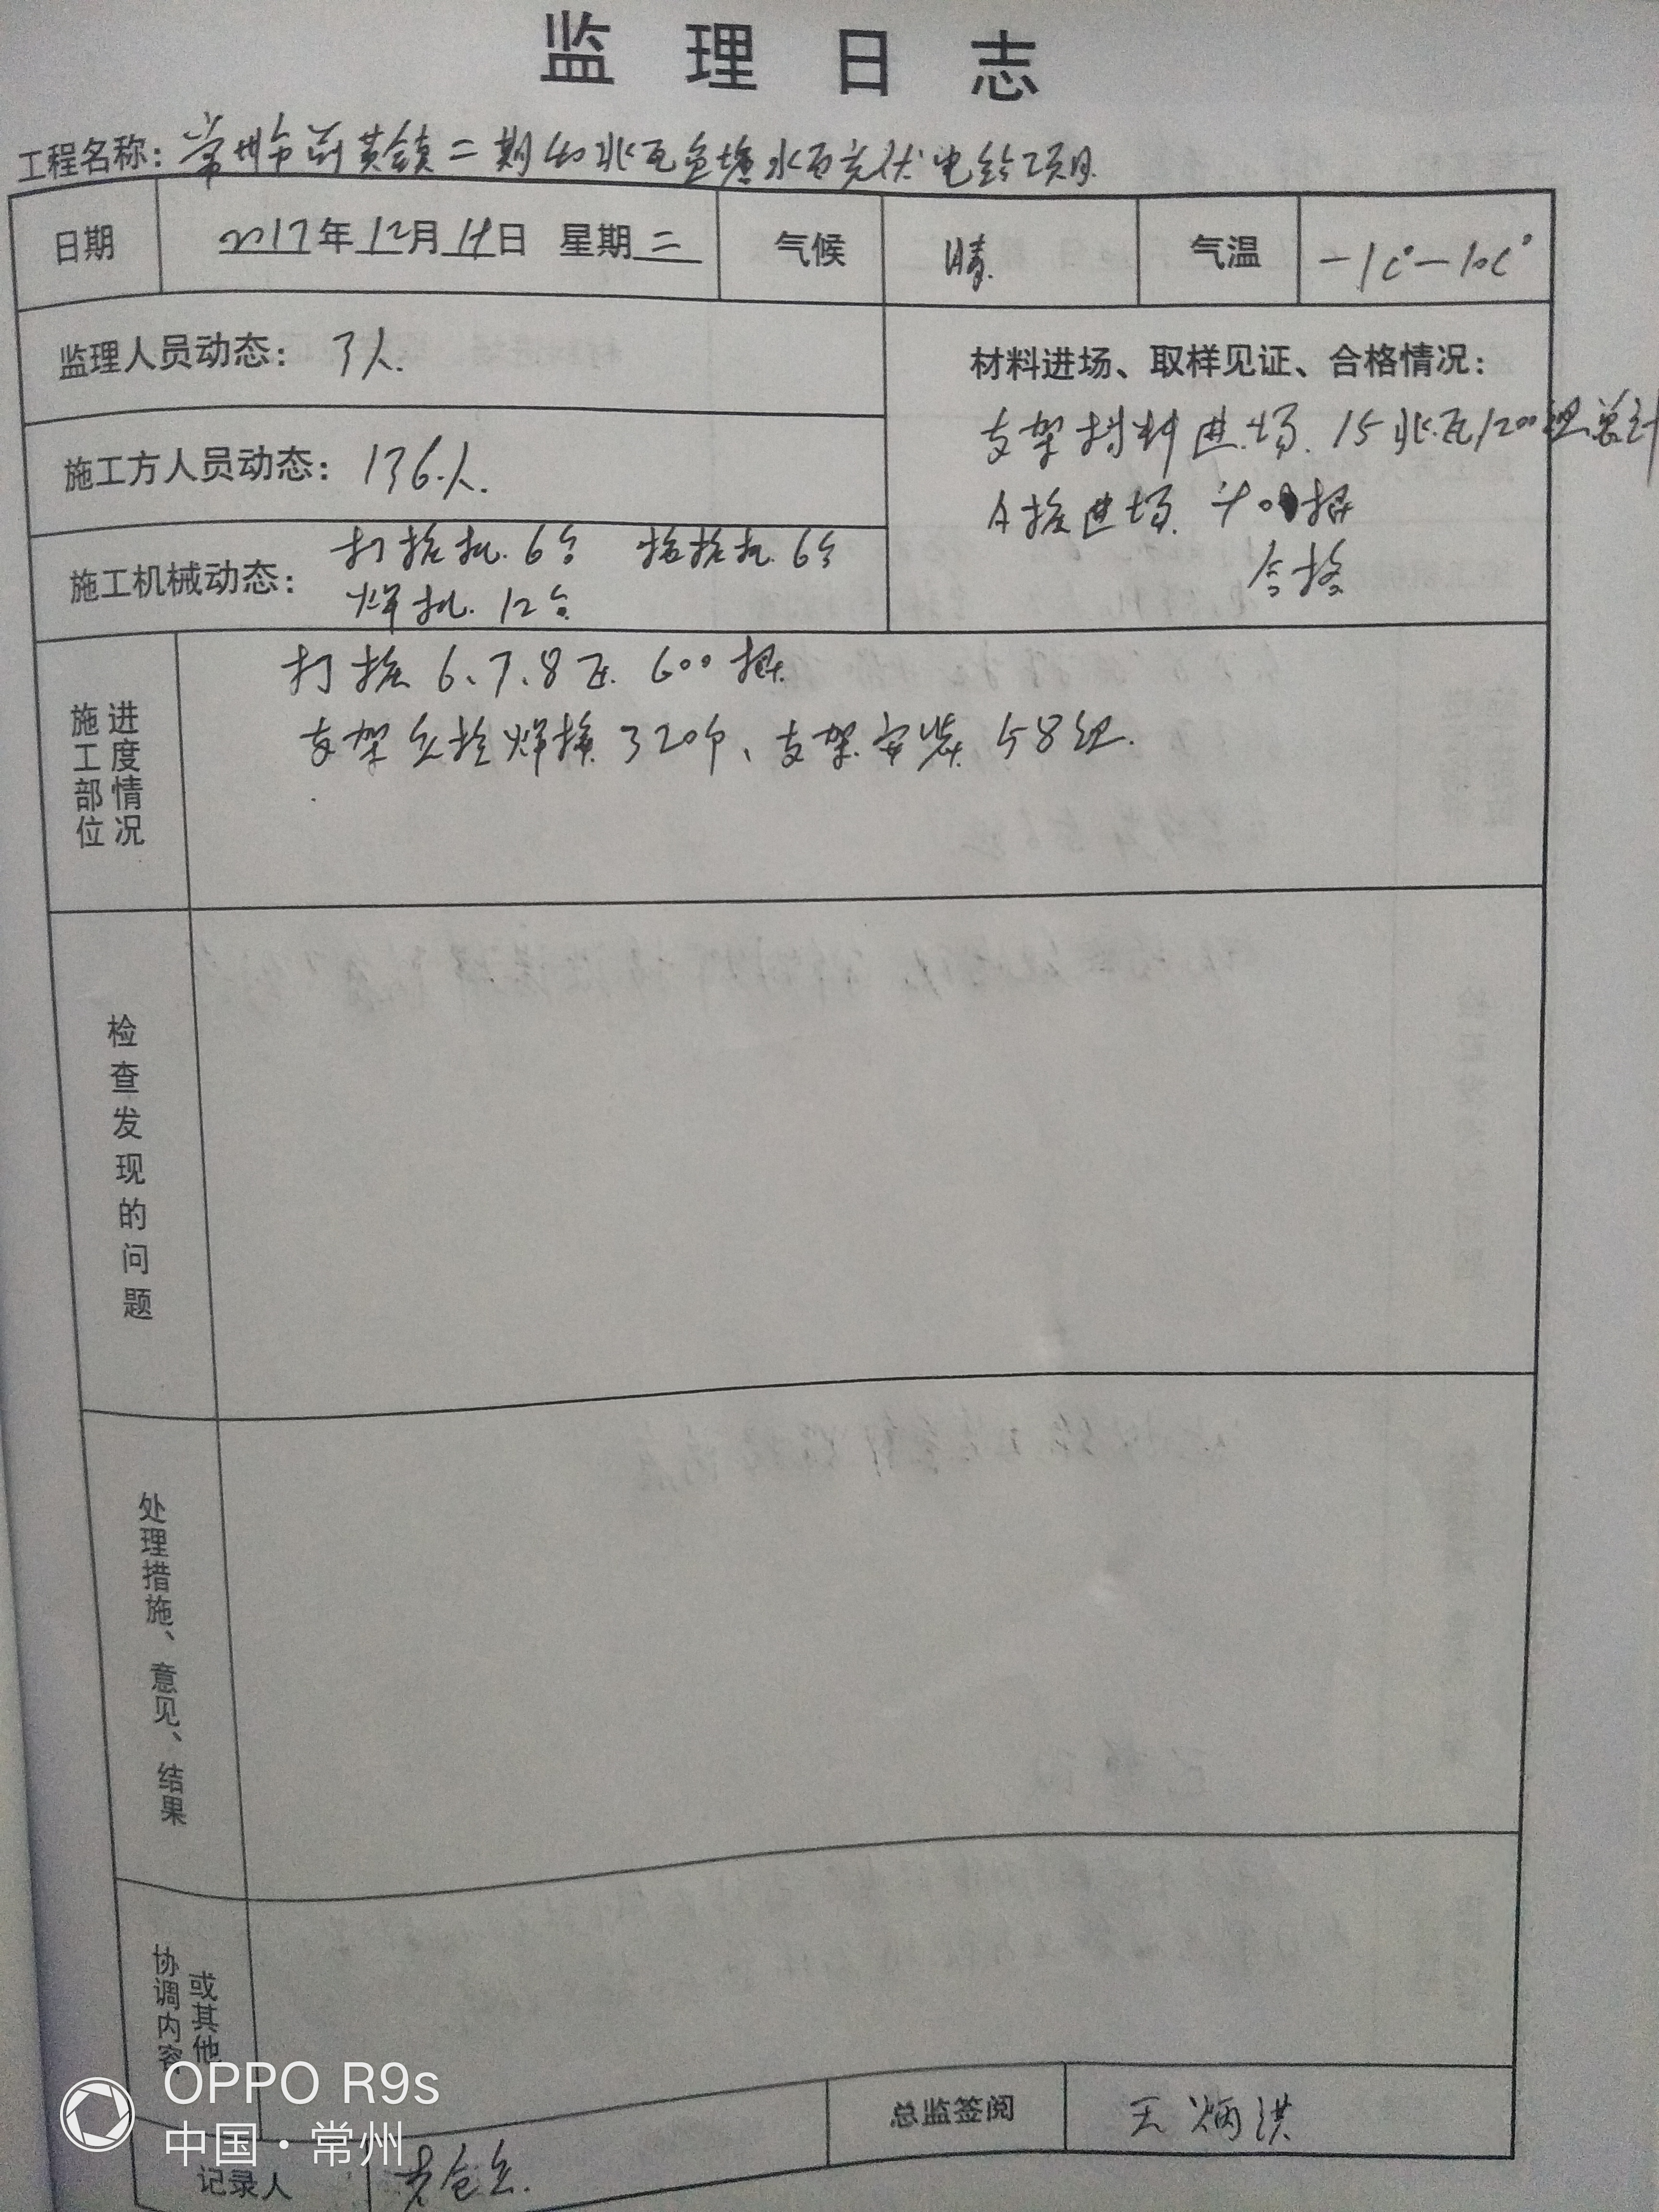 监理日志
工程名称：常州市前黄镇二期40兆瓦鱼塘水面光伏电站项目
日期 2017年12月14日 星期二 气候 晴 气温 -1C°-10C°
监理人员动态：3人
材料进场、取样见证、合格情况：
支架材料进场 15兆瓦1200组总计
施工方人员动态：136人
A桩进场 根
合格
施工机械动态：打桩机6台 6台
焊机12台
施工部位 进度情况
打桩6、7、8区 600根
支架 焊接320个、支架安装58组
检查发现的问题
处理措施、意见、结果
协调内容 或其他
记录人
总监签阅 王炳洪
OPPO R9s
中国·常州